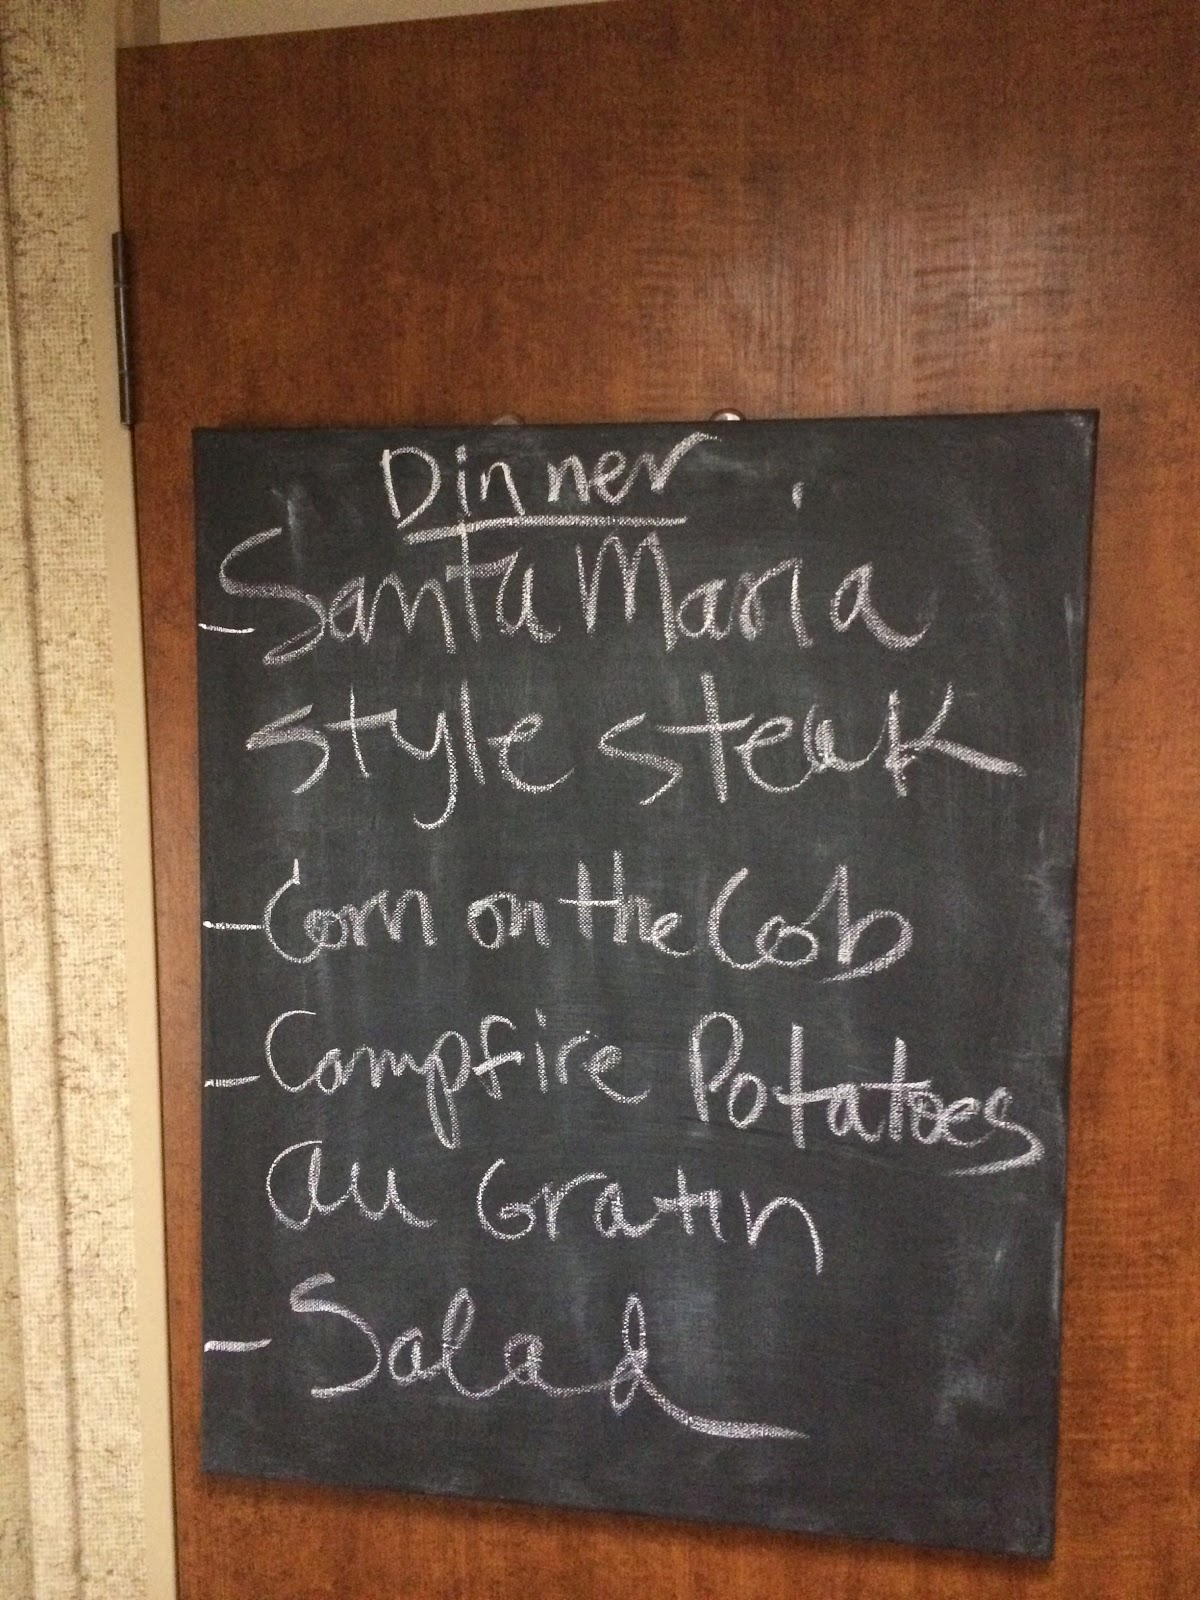 Dinner
- Santa Maria
style steak
- Corn on the Cob
- Campfire Potatoes
au Gratin
- Salad